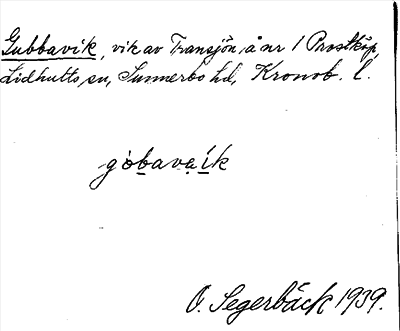 Gubbavik, vik av Transjön, å nr 1 Prostköp,
Lidhults sn, Sunnerbo hd, Kronob. l.
gòbavaík
O. Segerbäck 1939.